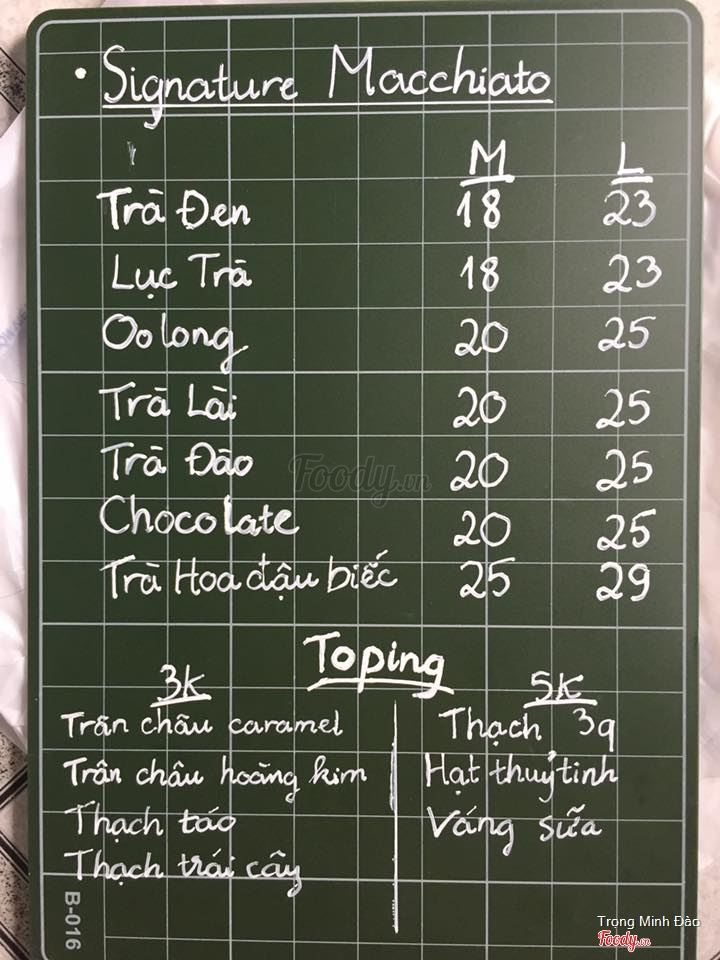 • Signature Macchiato
M L
Trà Đen 18 23
Lục Trà 18 23
Oolong 20 25
Trà Lài 20 25
Trà Đào 20 25
Chocolate 20 25
Trà Hoa đậu biếc 25 29
Toping
3K 5K
Trân châu caramel Thạch 3q
Trân châu hoàng kim Hạt thuỷ tinh
Thạch táo Váng sữa
Thạch trái cây
B-016
Foody.vn
Trọng Minh Đào
Foody.vn